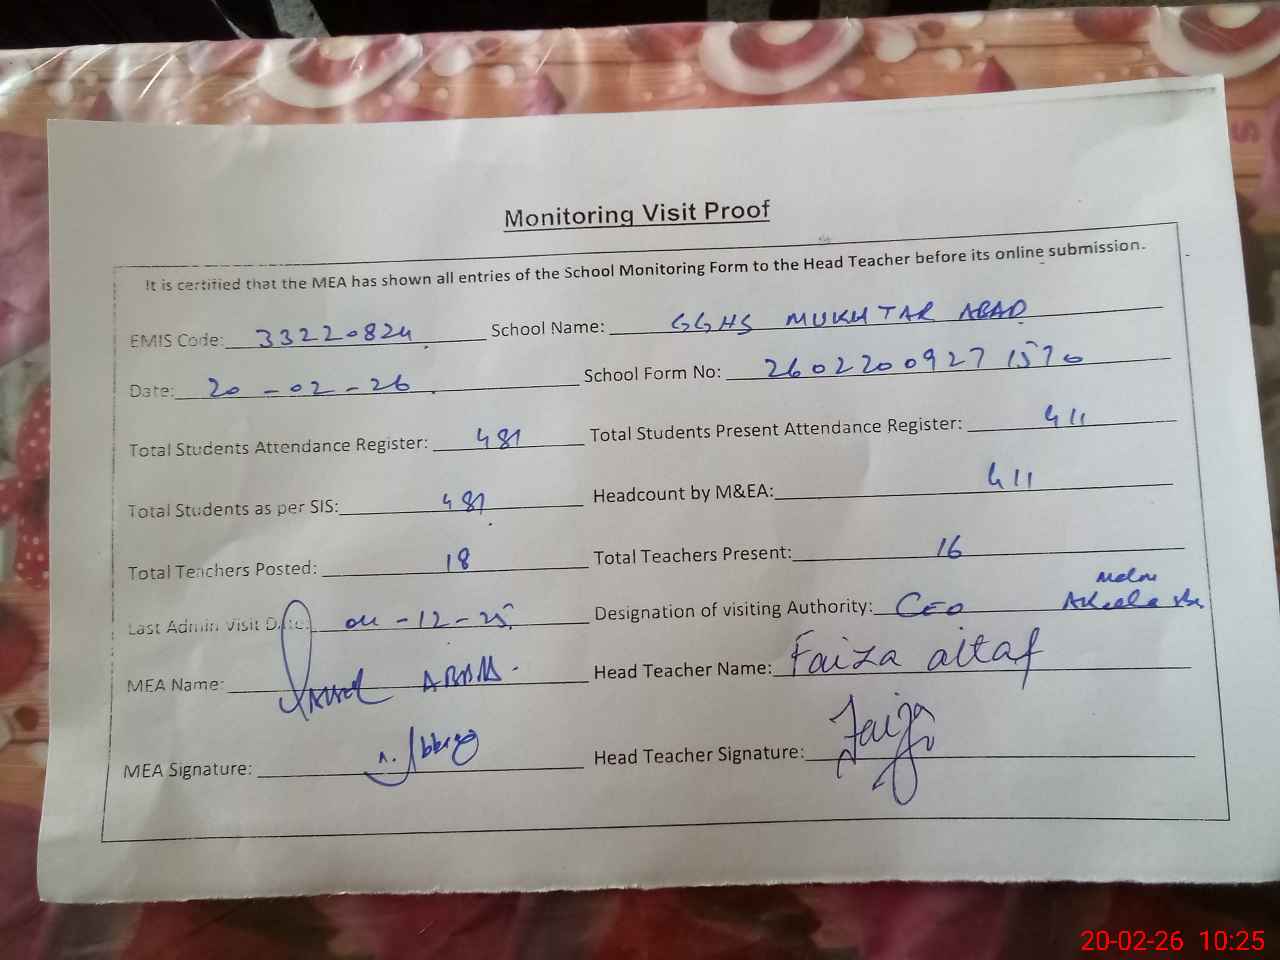 Monitoring Visit Proof
It is certified that the MEA has shown all entries of the School Monitoring Form to the Head Teacher before its online submission.
EMIS Code: 33220824 School Name: GGHS MUKHTAR ABAD
Date: 20-02-26 School Form No: 2602200927 1570
Total Students Attendance Register: 481 Total Students Present Attendance Register: 411
Total Students as per SIS: 481 Headcount by M&EA: 411
Total Teachers Posted: 18 Total Teachers Present: 16
Last Admin Visit Date: 04-12-25 Designation of visiting Authority: CEO
MEA Name: Head Teacher Name: Faiza altaf
MEA Signature: Head Teacher Signature: Faiza
20-02-26 10:25